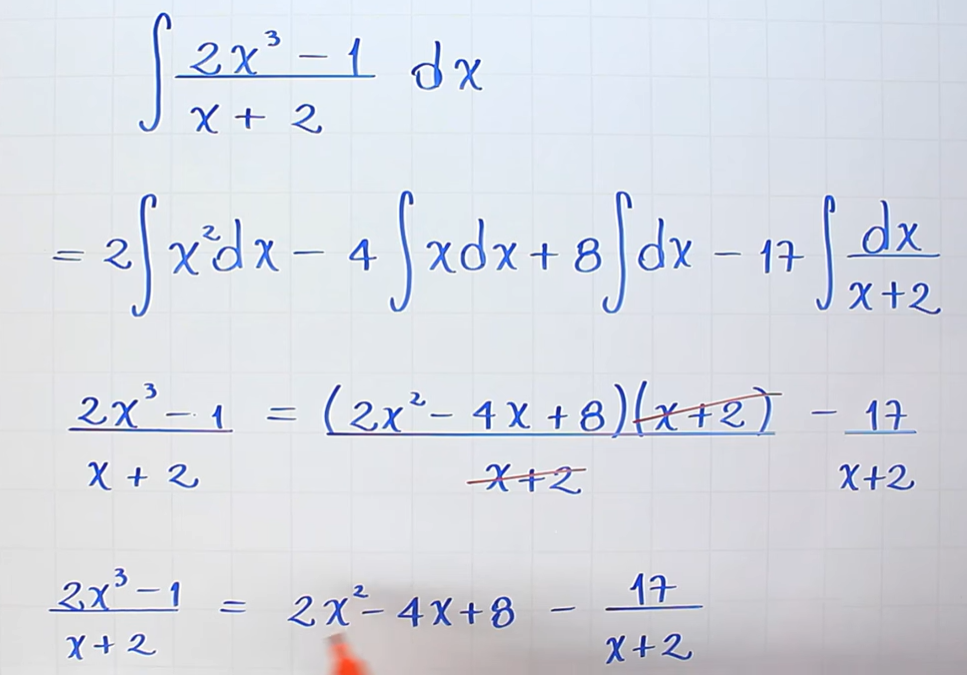 ∫ (2x³ − 1)/(x + 2) dx
= 2∫x²dx − 4∫xdx + 8∫dx − 17∫dx/(x+2)
(2x³ − 1)/(x + 2) = (2x² − 4x + 8)(x+2)/(x+2) − 17/(x+2)
(2x³ − 1)/(x + 2) = 2x² − 4x + 8 − 17/(x+2)